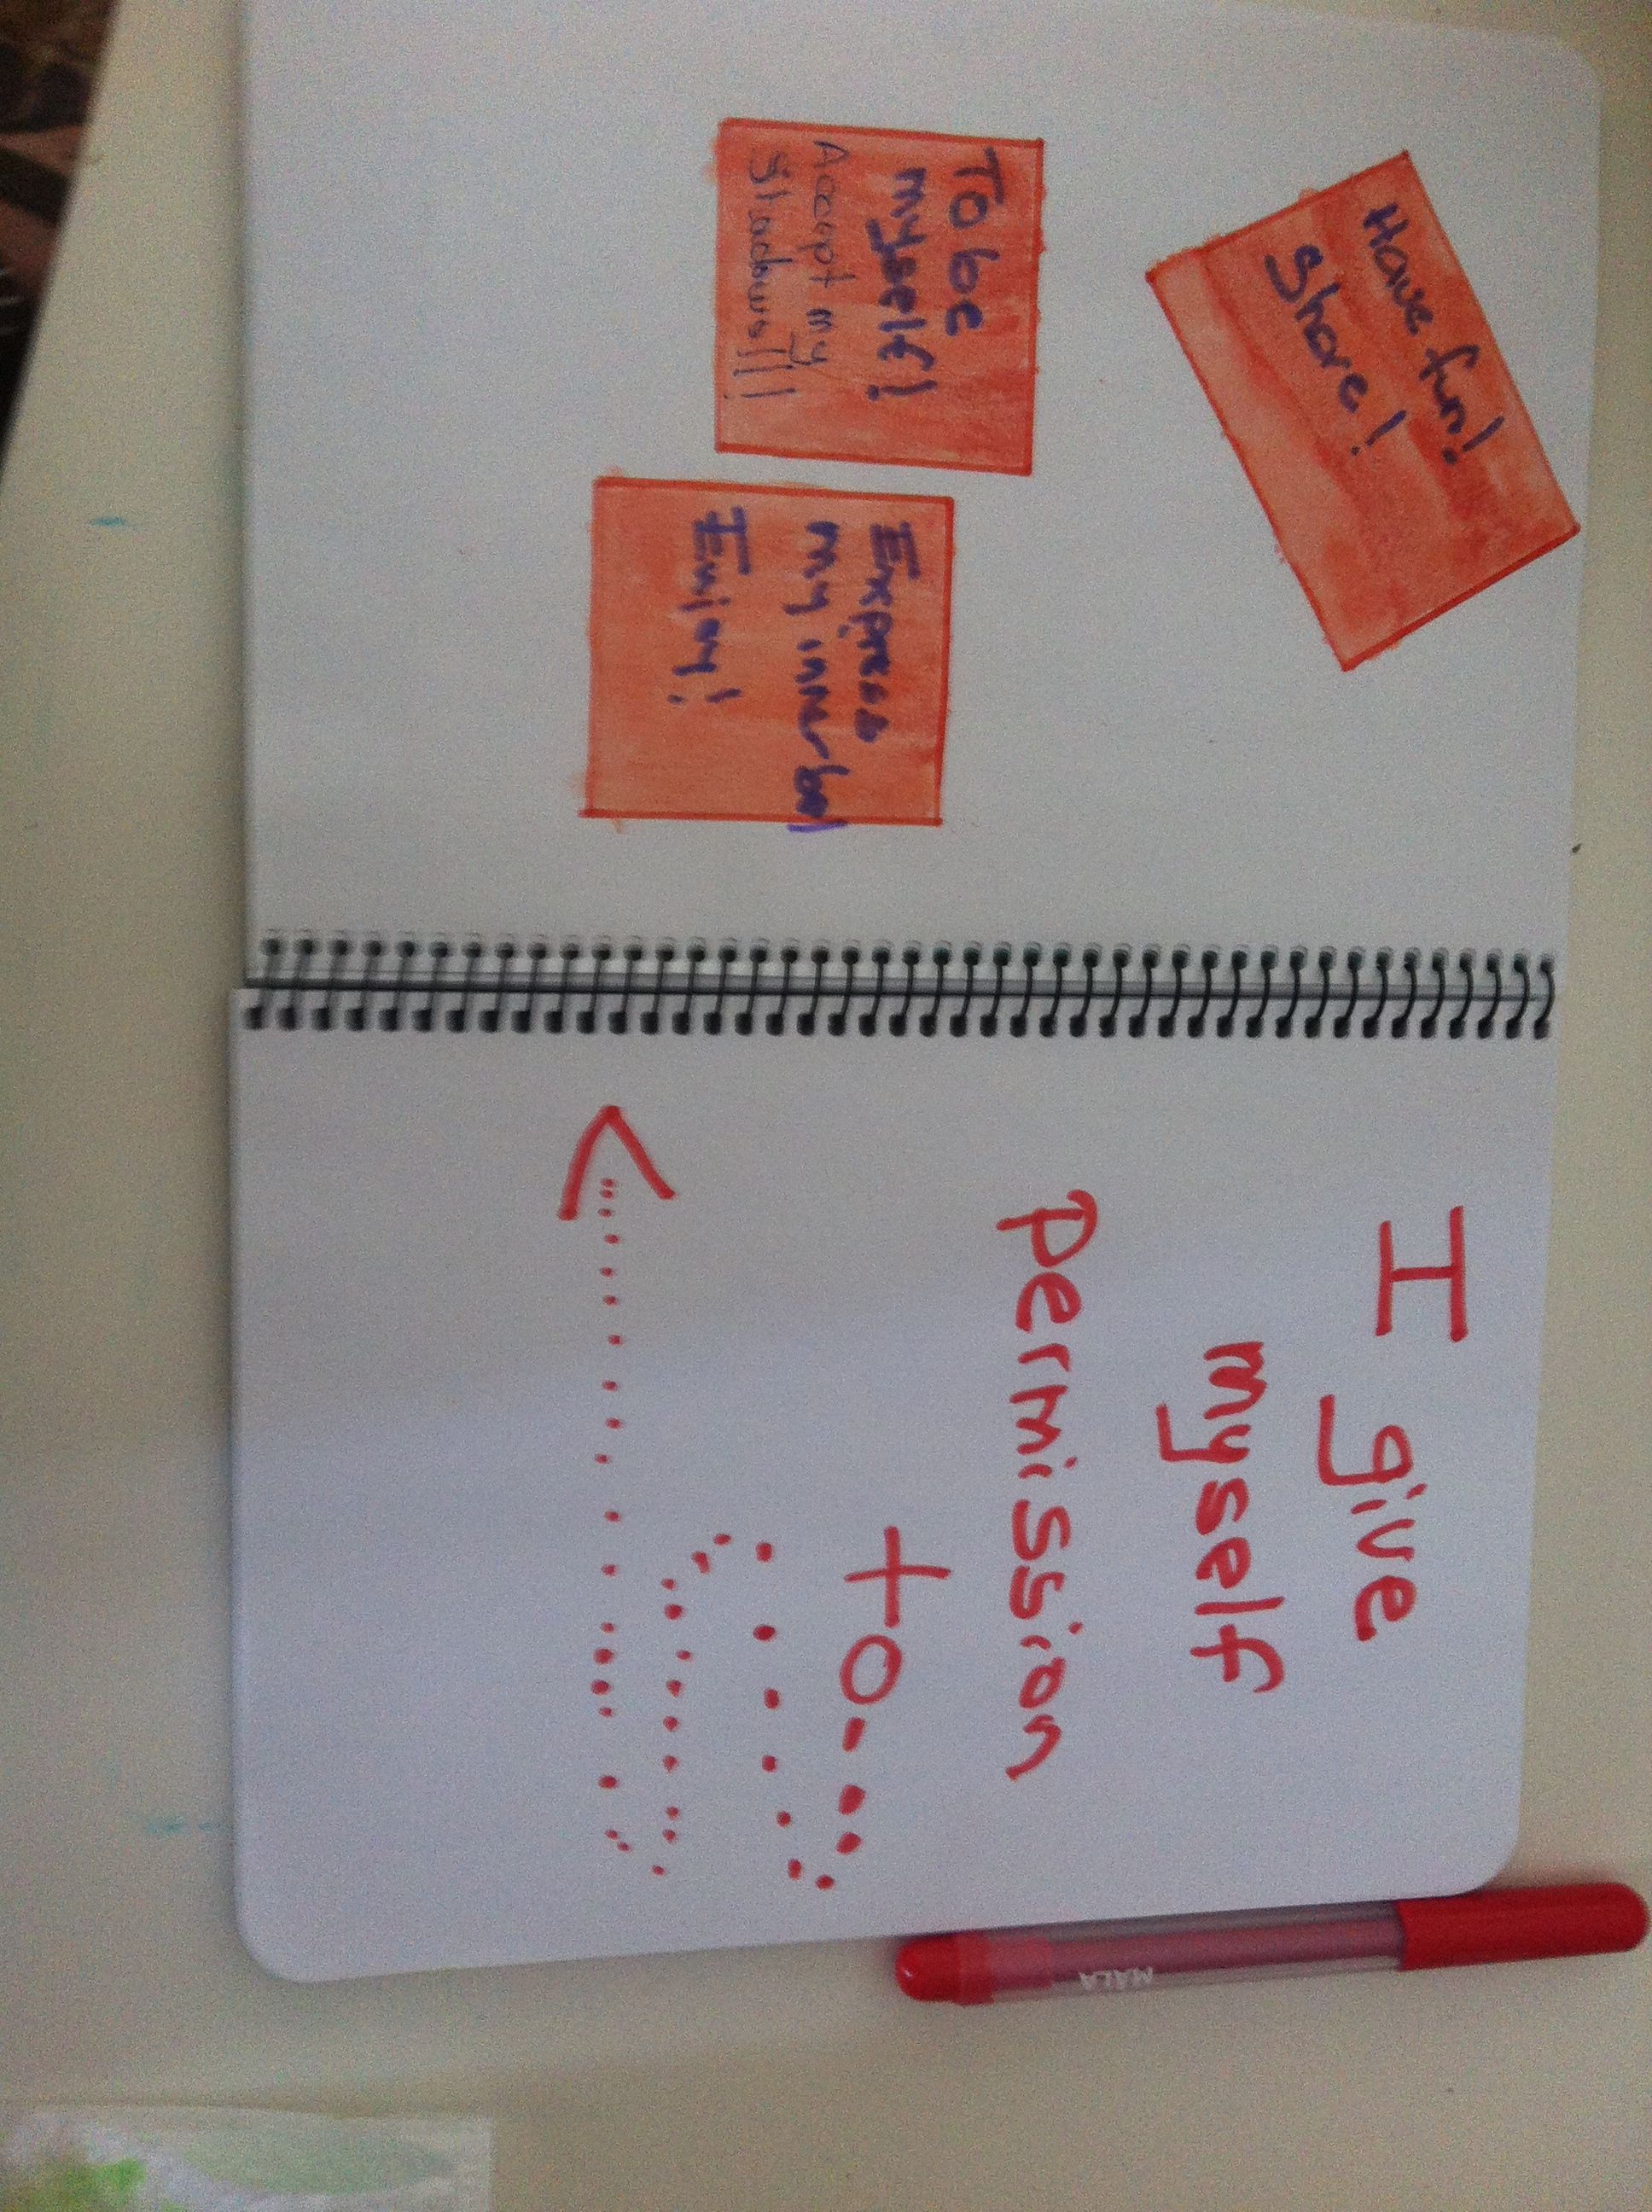 Have fun!
Share!
To be
myself!
Accept my
Shadows!!!
Express
my inner
Enjoy!
I give
myself
permission
to
MÅLA